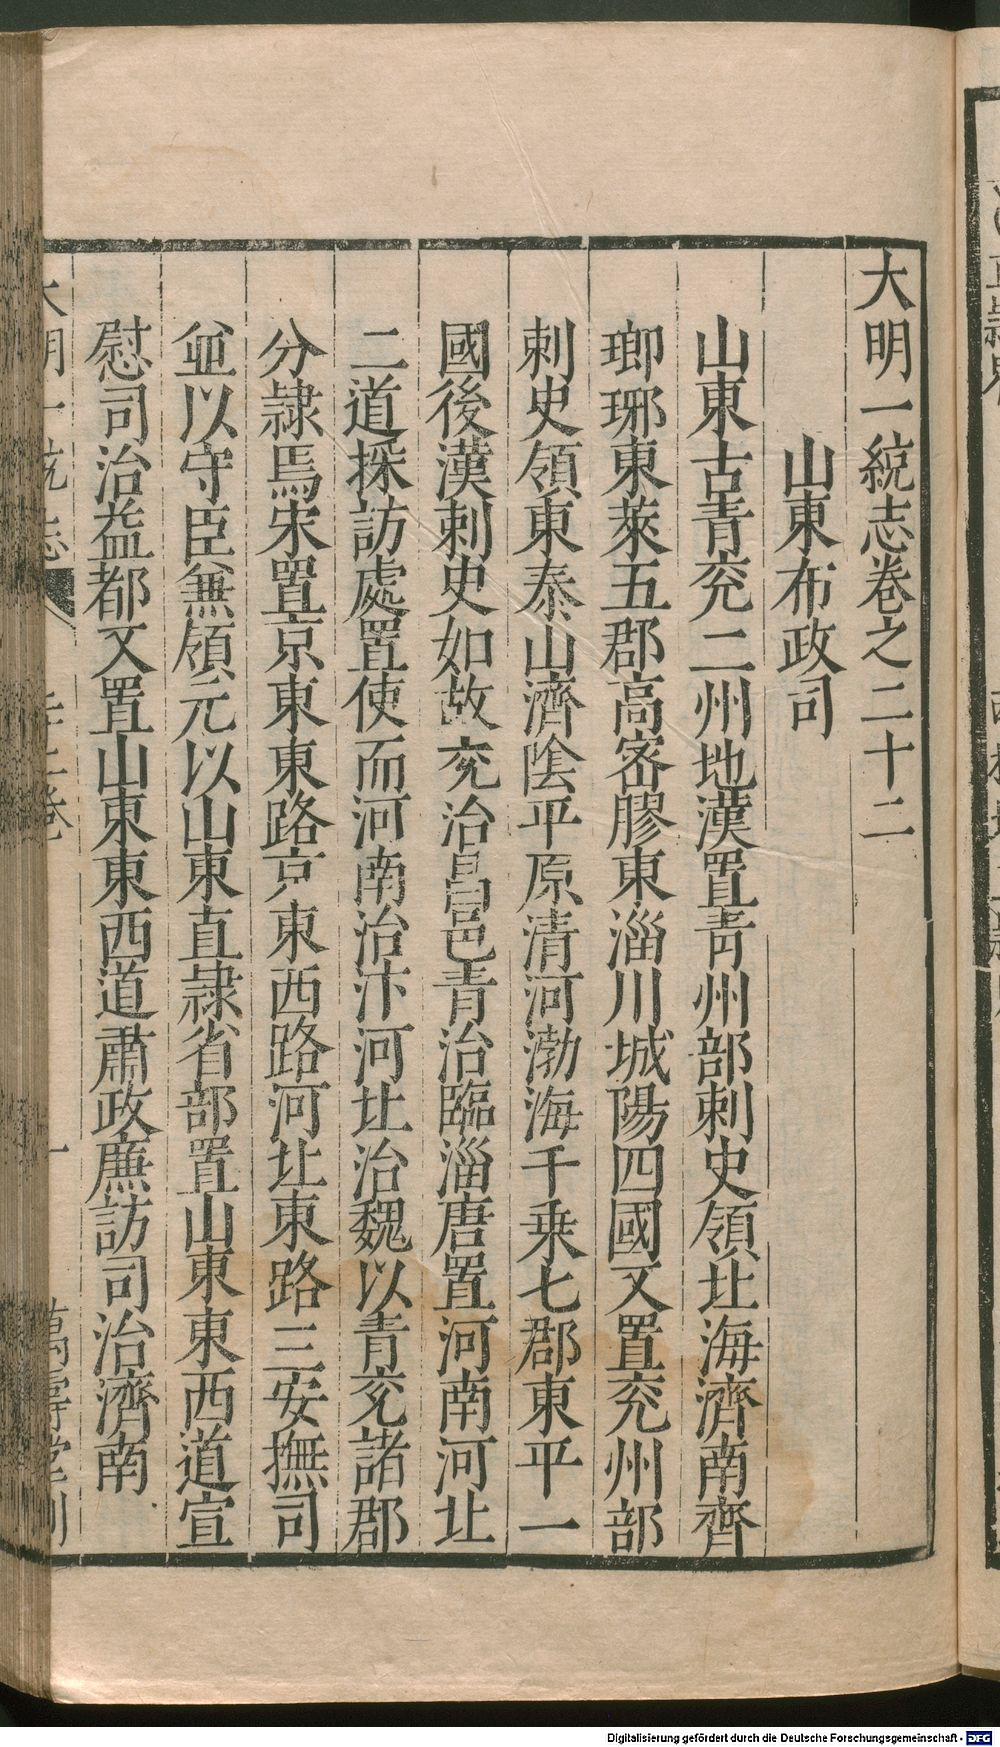 大明一統志卷之二十二
山東布政司
山東古青兖二州地漢置青州部刺史領北海濟南齊
瑯琊東萊五郡高密膠東淄川城陽四國又置兖州部
刺史領東泰山濟陰平原清河渤海千乗七郡東平一
國後漢刺史如故兖治昌邑青治臨淄唐置河南河北
二道採訪處置使而河南治汴河北治魏以青兖諸郡
分隷焉宋置京東東路京東西路河北東路三安撫司
並以守臣兼領元以山東直隷省部置山東東西道宣
慰司治益都又置山東東西道肅政廉訪司治濟南
大明一統志 卷 一 萬壽堂刊
Digitalisierung gefördert durch die Deutsche Forschungsgemeinschaft - DFG